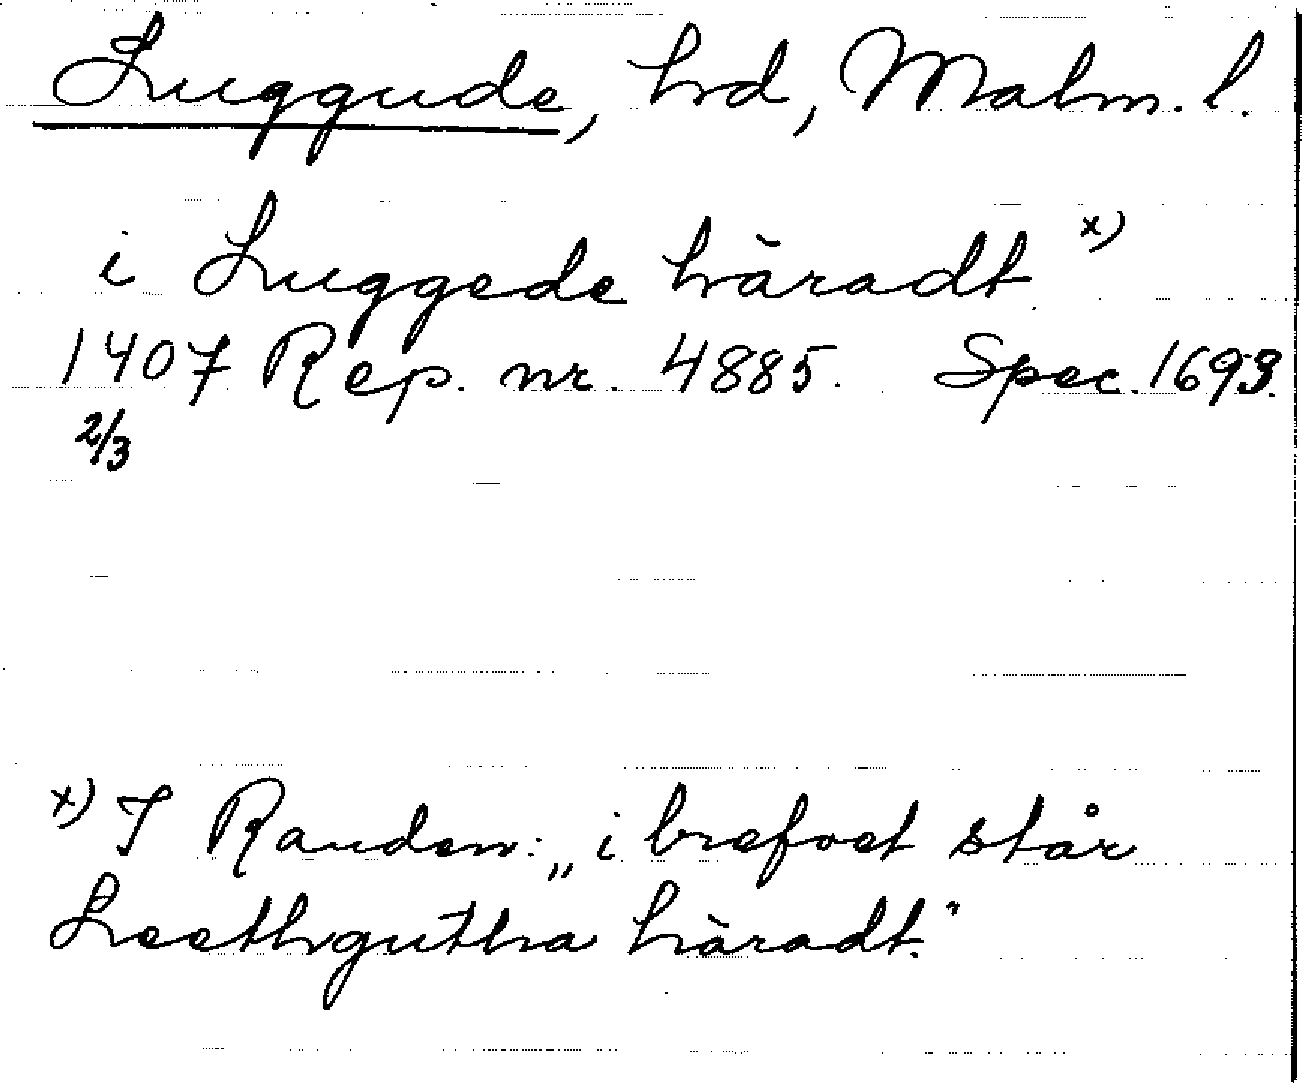 Luggude, hd, Malm. l.
i Luggede häradt x)
1407 Rep. nr. 4885. Spec. 1693.
2/3
x) I Randen: „i brefvet står
Leethgutha häradt."